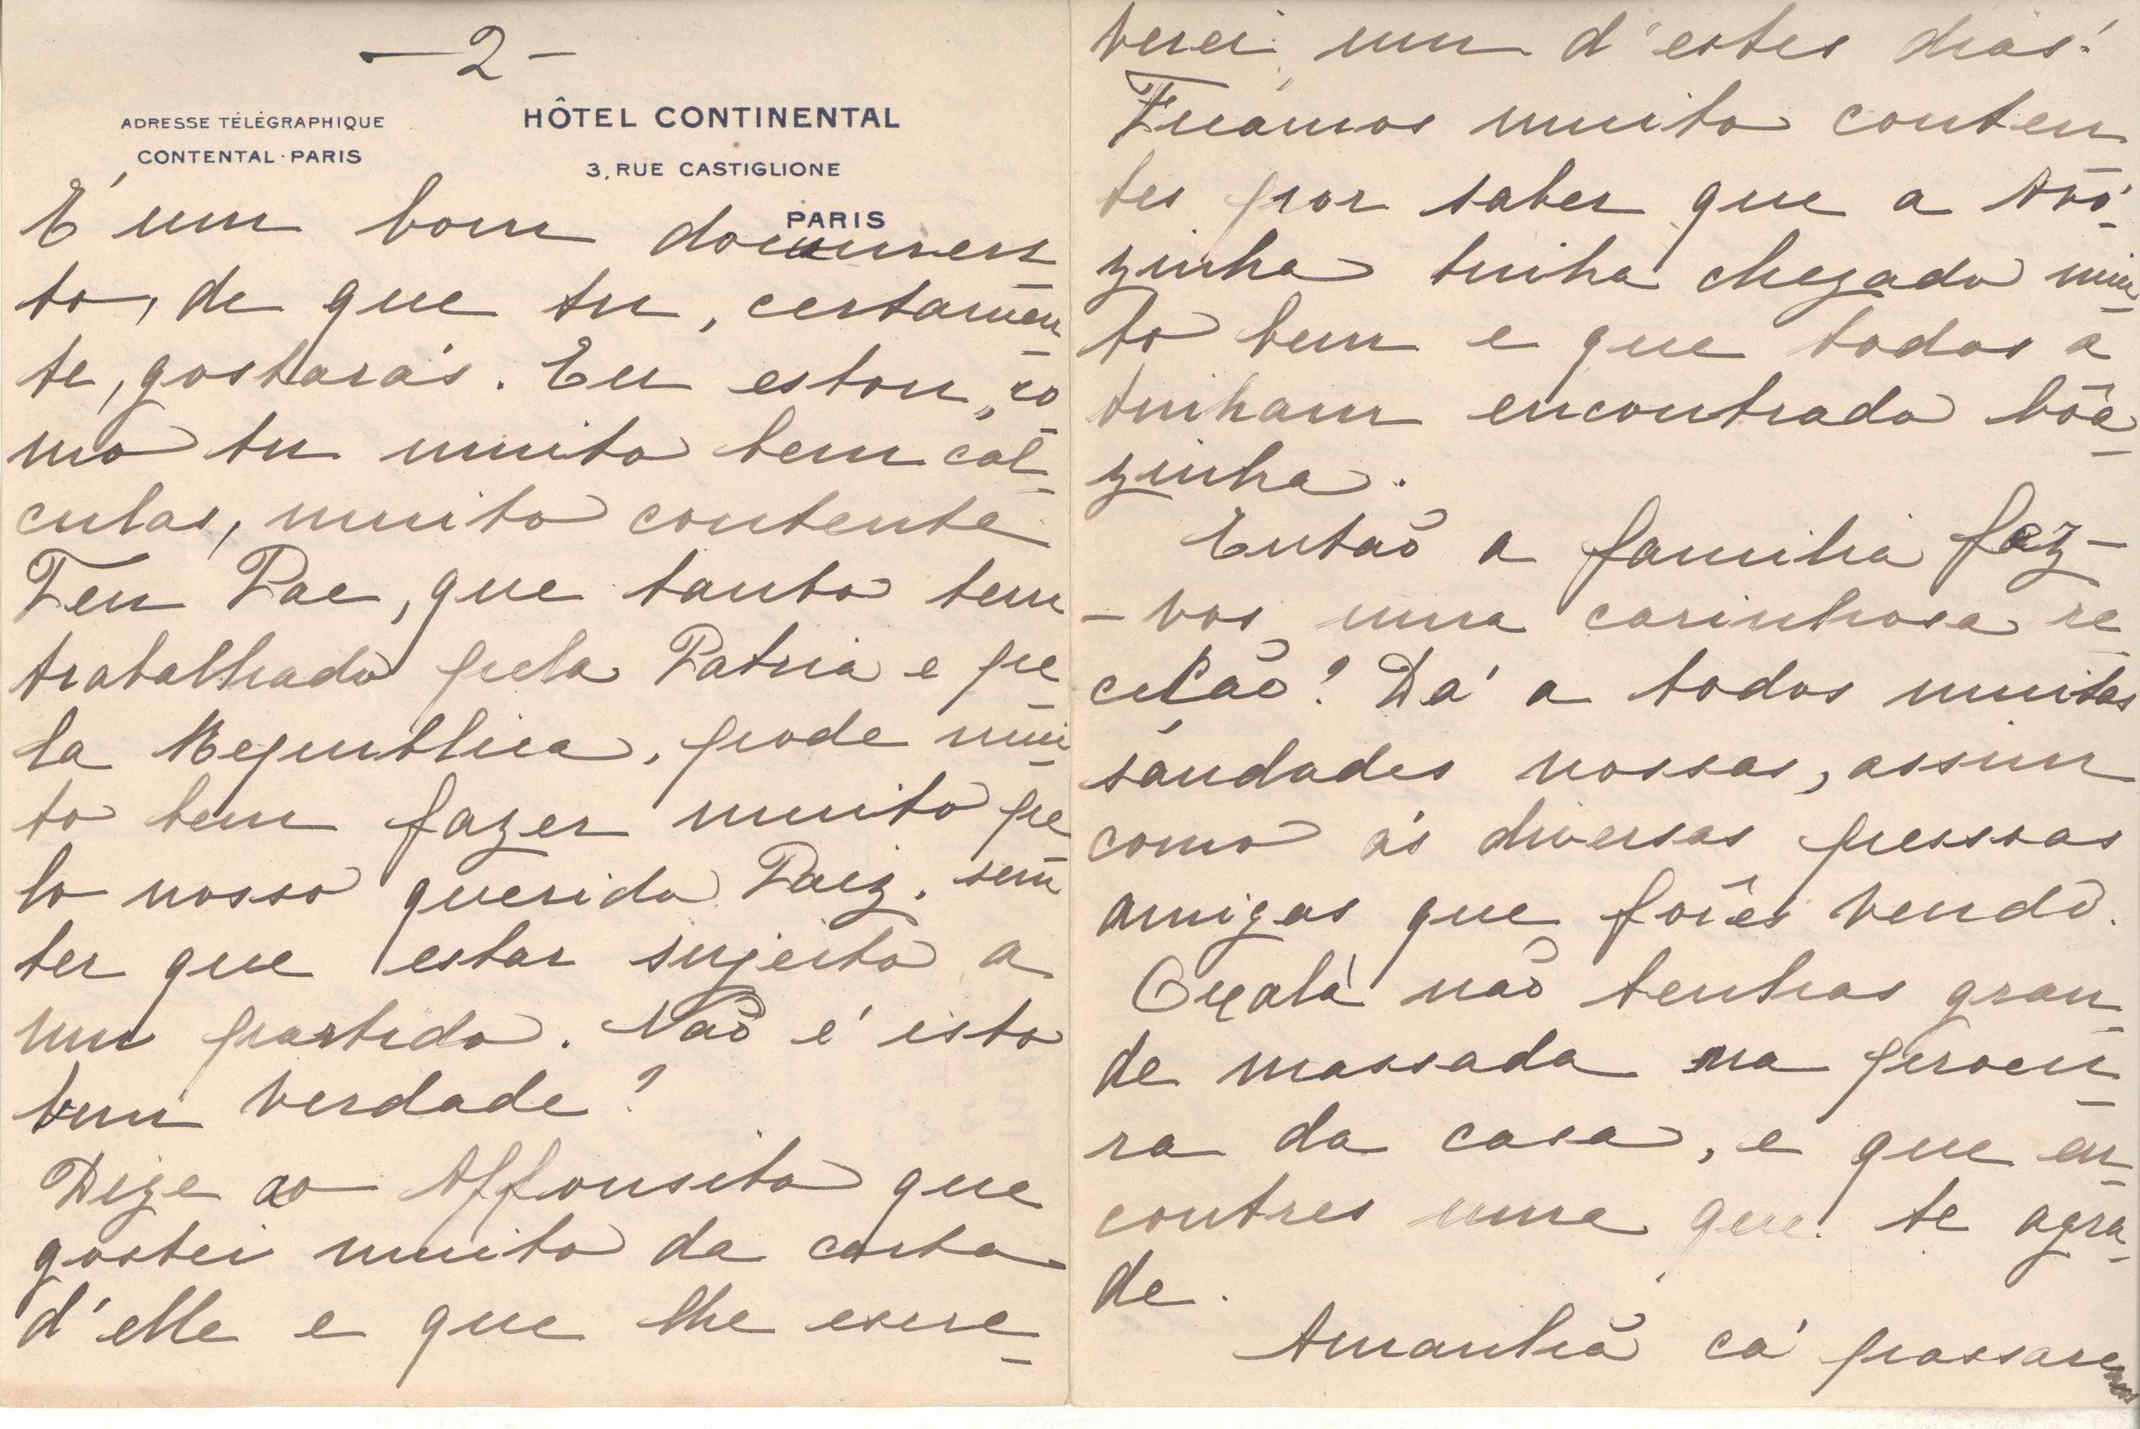 — 2 —
ADRESSE TÉLÉGRAPHIQUE
CONTENTAL·PARIS
HÔTEL CONTINENTAL
3, RUE CASTIGLIONE
PARIS
É um bom documen
to, de que tu, certamen-
te, gostarás. Eu estou, co-
mo tu muito bem cal-
culas, muito contente.
Teu Pae, que tanto tem
trabalhado pela Patria e pe-
la Republica, pode mui-
to bem fazer muito pe-
lo nosso querido Paiz, sem
ter que estar sujeito a
um partido. Não é isto
bem verdade?
Dize ao Affonsito que
gostei muito da carta
d'elle e que lhe escre-
verei um d'estes dias!
Ficámos muito conten
tes por saber que a Avó-
zinha tinha chegado mui-
to bem e que todos a
tinham encontrado bôa-
zinha.
Então a familia fez-
-vos uma carinhosa re-
cepção? Dá a todos muitas
saudades nossas, assim
como ás diversas pessoas
amigas que fôres vendo.
Oxalá não tenhas gran-
de massada na procu-
ra da casa, e que en-
contres uma que te agra-
de.
Amanhã cá passaremos